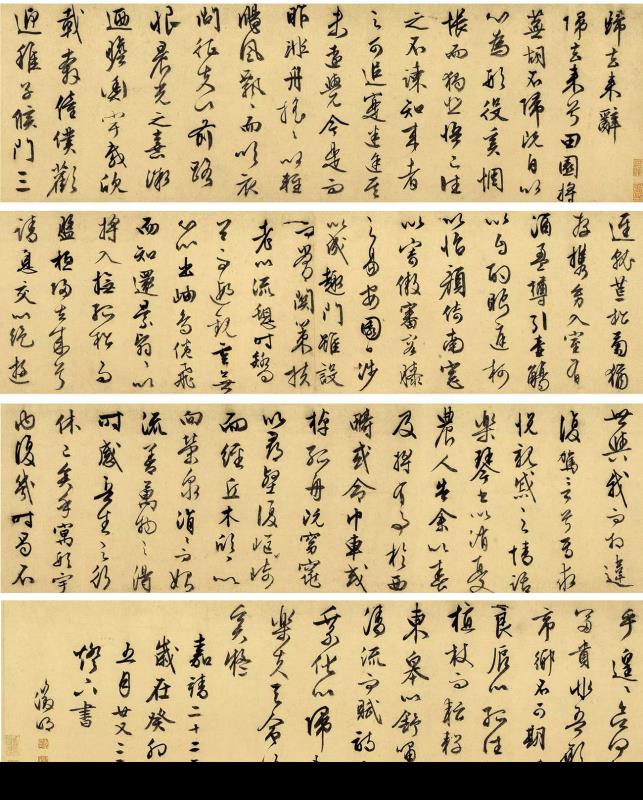 歸去來辭
歸去來兮田園將
蕪胡不歸既自以
心為形役奚惆
悵而獨悲悟已往
之不諫知來者
之可追寔迷途其
未遠覺今是而
昨非舟搖〻以輕
颺風飄〻而吹衣
問征夫以前路
恨晨光之熹微
迺瞻衡宇載欣
載奔僮僕歡
迎稚子候門三
逕就荒松菊猶
存攜幼入室有
酒盈樽引壺觴
以自酌眄庭柯
以怡顏倚南窗
以寄傲審容膝
之易安園日涉
以成趣門雖設
而常關策扶
老以流憩時矯
首而遐觀雲無
心以出岫鳥倦飛
而知還景翳〻以
將入撫孤松而
盤桓歸去來兮
請息交以絕遊
世與我而相違
復駕言兮焉求
悅親戚之情話
樂琴書以消憂
農人告余以春
及將有事於西
疇或命巾車或
棹孤舟既窈窕
以尋壑復嶇崎
而經丘木欣〻以
向榮泉涓〻而始
流善萬物之得
時感吾生之行
休已矣乎寓形宇
內復幾時曷不
乎遑〻欲何
富貴非吾願
帝鄉不可期
良辰以孤往
植杖而耘耔
東皋以舒嘯
清流而賦詩
乘化以歸
樂夫天命
奚疑
嘉靖二十二
歲在癸卯
五月廿又二
燈下書
徵明